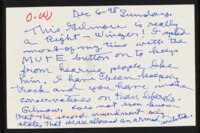 O.W) Dec 6-98 Sundays.
This Gilmore is really
a Right-Winger! I spend
most of my time with the
MUTE button on to keep
from hearing people like
him. I have been keeping
track and you have more
conservatives on than liberals.
Gilmore does not even know
that the second amendment only
states that was allowed an armed militia.